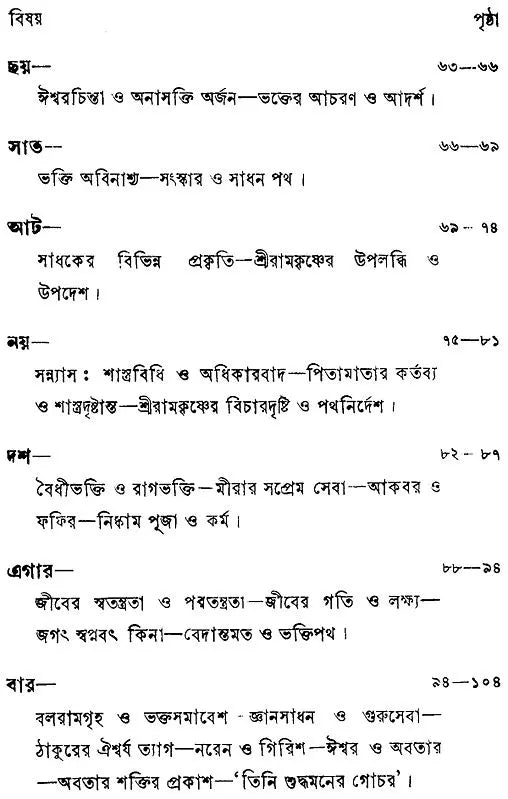 বিষয় পৃষ্ঠা
ছয়— ৬৩—৬৬
ঈশ্বরচিন্তা ও অনাসক্তি অর্জন—ভক্তের আচরণ ও আদর্শ।
সাত— ৬৬—৬৯
ভক্তি অবিনাশ্য—সংস্কার ও সাধন পথ।
আট— ৬৯ - ৭৪
সাধকের বিভিন্ন প্রকৃতি—শ্রীরামকৃষ্ণের উপলব্ধি ও
উপদেশ।
নয়— ৭৫—৮১
সন্ন্যাস : শাস্ত্রবিধি ও অধিকারবাদ—পিতামাতার কর্তব্য
ও শাস্ত্রদৃষ্টান্ত—শ্রীরামকৃষ্ণের বিচারদৃষ্টি ও পথনির্দেশ।
দশ— ৮২ - ৮৭
বৈধীভক্তি ও রাগভক্তি—মীরার সপ্রেম সেবা—আকবর ও
ফকির—নিষ্কাম পূজা ও কর্ম।
এগার— ৮৮—৯৪
জীবের স্বতন্ত্রতা ও পরতন্ত্রতা—জীবের গতি ও লক্ষ্য—
জগৎ স্বপ্নবৎ কিনা—বেদান্তমত ও ভক্তিপথ।
বার— ৯৪—১০৪
বলরামগৃহ ও ভক্তসমাবেশ - জ্ঞানসাধন ও গুরুসেবা—
ঠাকুরের ঐশ্বর্য ত্যাগ—নরেন ও গিরিশ—ঈশ্বর ও অবতার
—অবতার শক্তির প্রকাশ—‘তিনি শুদ্ধমনের গোচর’।